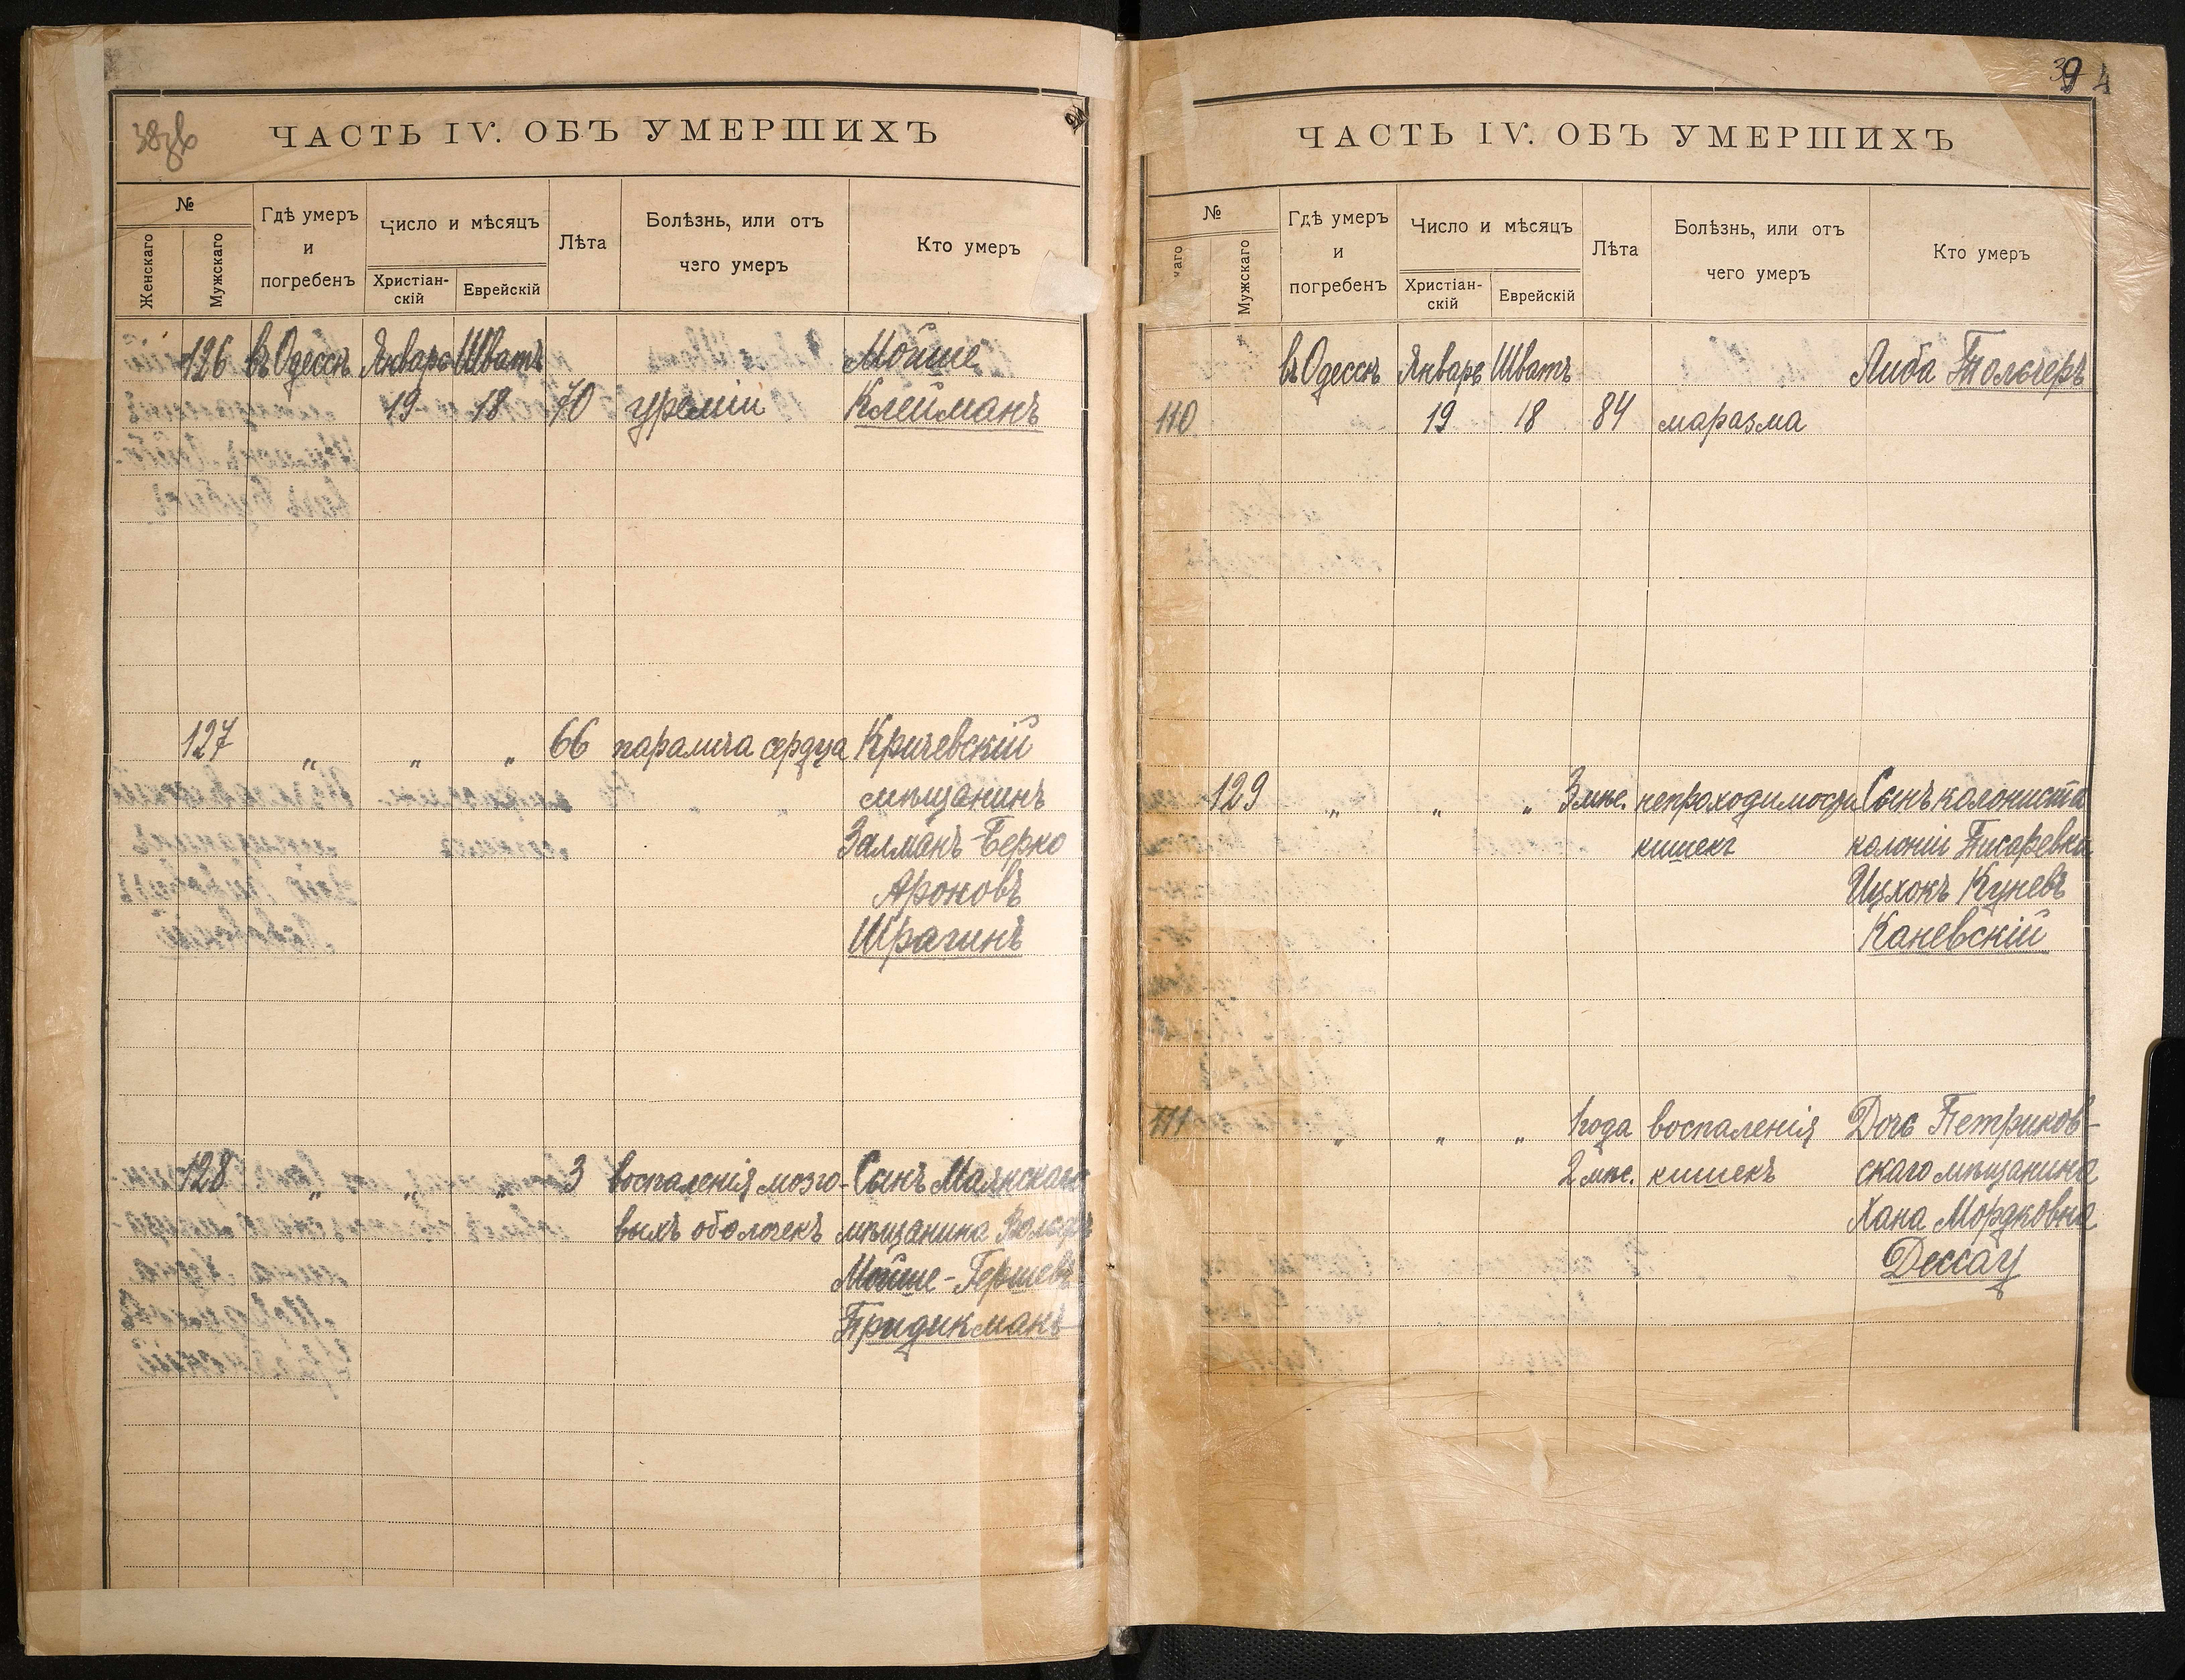 ЧАСТЬ IV. ОБЪ УМЕРШИХЪ
№
Женскаго
Мужскаго
Гдѣ умеръ
и
погребенъ
Число и мѣсяцъ
Христіан-
скій
Еврейскій
Лѣта
Болѣзнь, или отъ
чего умеръ
Кто умеръ
126 въ Одессѣ Январь Шватъ Мойше
19 18 70 уреміи Клейманъ
127 " " " 66 паралича сердца Кричевскій
мѣщанинъ
Залманъ-Берко
Ароновъ
Шрагинъ
128 " " " 3 воспаленія мозго- Сынъ Маякскаго
выхъ оболочекъ мѣщанина
Мойше-Гершевъ
Придикманъ
39
ЧАСТЬ IV. ОБЪ УМЕРШИХЪ
№
наго
Мужскаго
Гдѣ умеръ
и
погребенъ
Число и мѣсяцъ
Христіан-
скій
Еврейскій
Лѣта
Болѣзнь, или отъ
чего умеръ
Кто умеръ
въ Одессѣ Январь Шватъ Либа Тольчеръ
110 19 18 84 маразма
129 " " " 3 мѣс. непроходимости Сынъ колониста
кишекъ колоніи Писаревка
Ицхокъ Куневъ
Каневскій
111 " " " 1 года воспаленія Дочь Петриков-
2 мѣс. кишекъ скаго мѣщанина
Хана Мордковна
Дессау